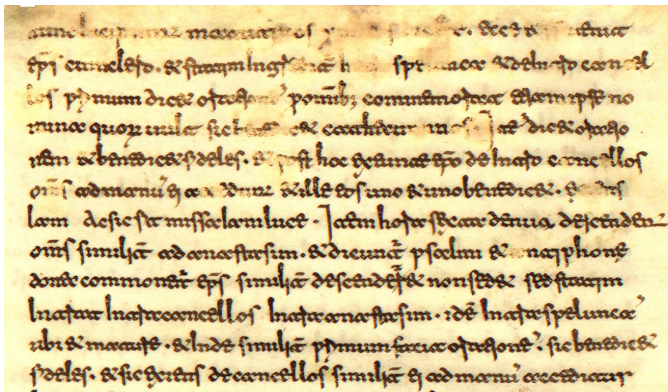 matutinos
eps cum clero · et statim ingr spelunca et de intro cancel
los primum dicet orationē p omnibus commemorat etiam ipse no
mina quorum uult sic et Itē dicet oratio
nem et benedicet fideles · et post hoc exeunte epo de intro cancellos
oms ad manū ei et ille eos uno et uno benedicet ·
iam Ac sic fit missa iam luce · Item hora sexta denuo descendent
oms similit ad anastasim · et dicunt psalmi et antiphone
donec commonet eps similit descendet et non sedet sed statim
intrat intra cancellos intra anastasim · idē intra speluncā
ubi et mature · et inde similit primum facit orationē · sic benedicet
fideles · et sic exiens de cancellos similit ei ad manū acceditur